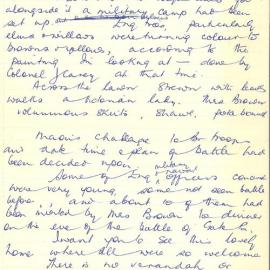 alongside a military camp had been
set up. trees, particularly
elms & willows were turning colour to
browns & yellows, according to the
painting I'm looking at — done by
Colonel at that time.
Across the lawn strewn with leaves
walks a woman lady. Mrs Brown
voluminous skirts, shawl,
Maoris challenge to Br troops
and date time & plan of Battle had
been decided upon. military
Some of & naval officers concerned
were very young, some not seen battle
before, and about 10 of them had
been invited by Mrs Brown to dinner
on the eve of the battle of Gate Pa.
I want you to see this lovely
home where all were so welcome
There is no verandah or